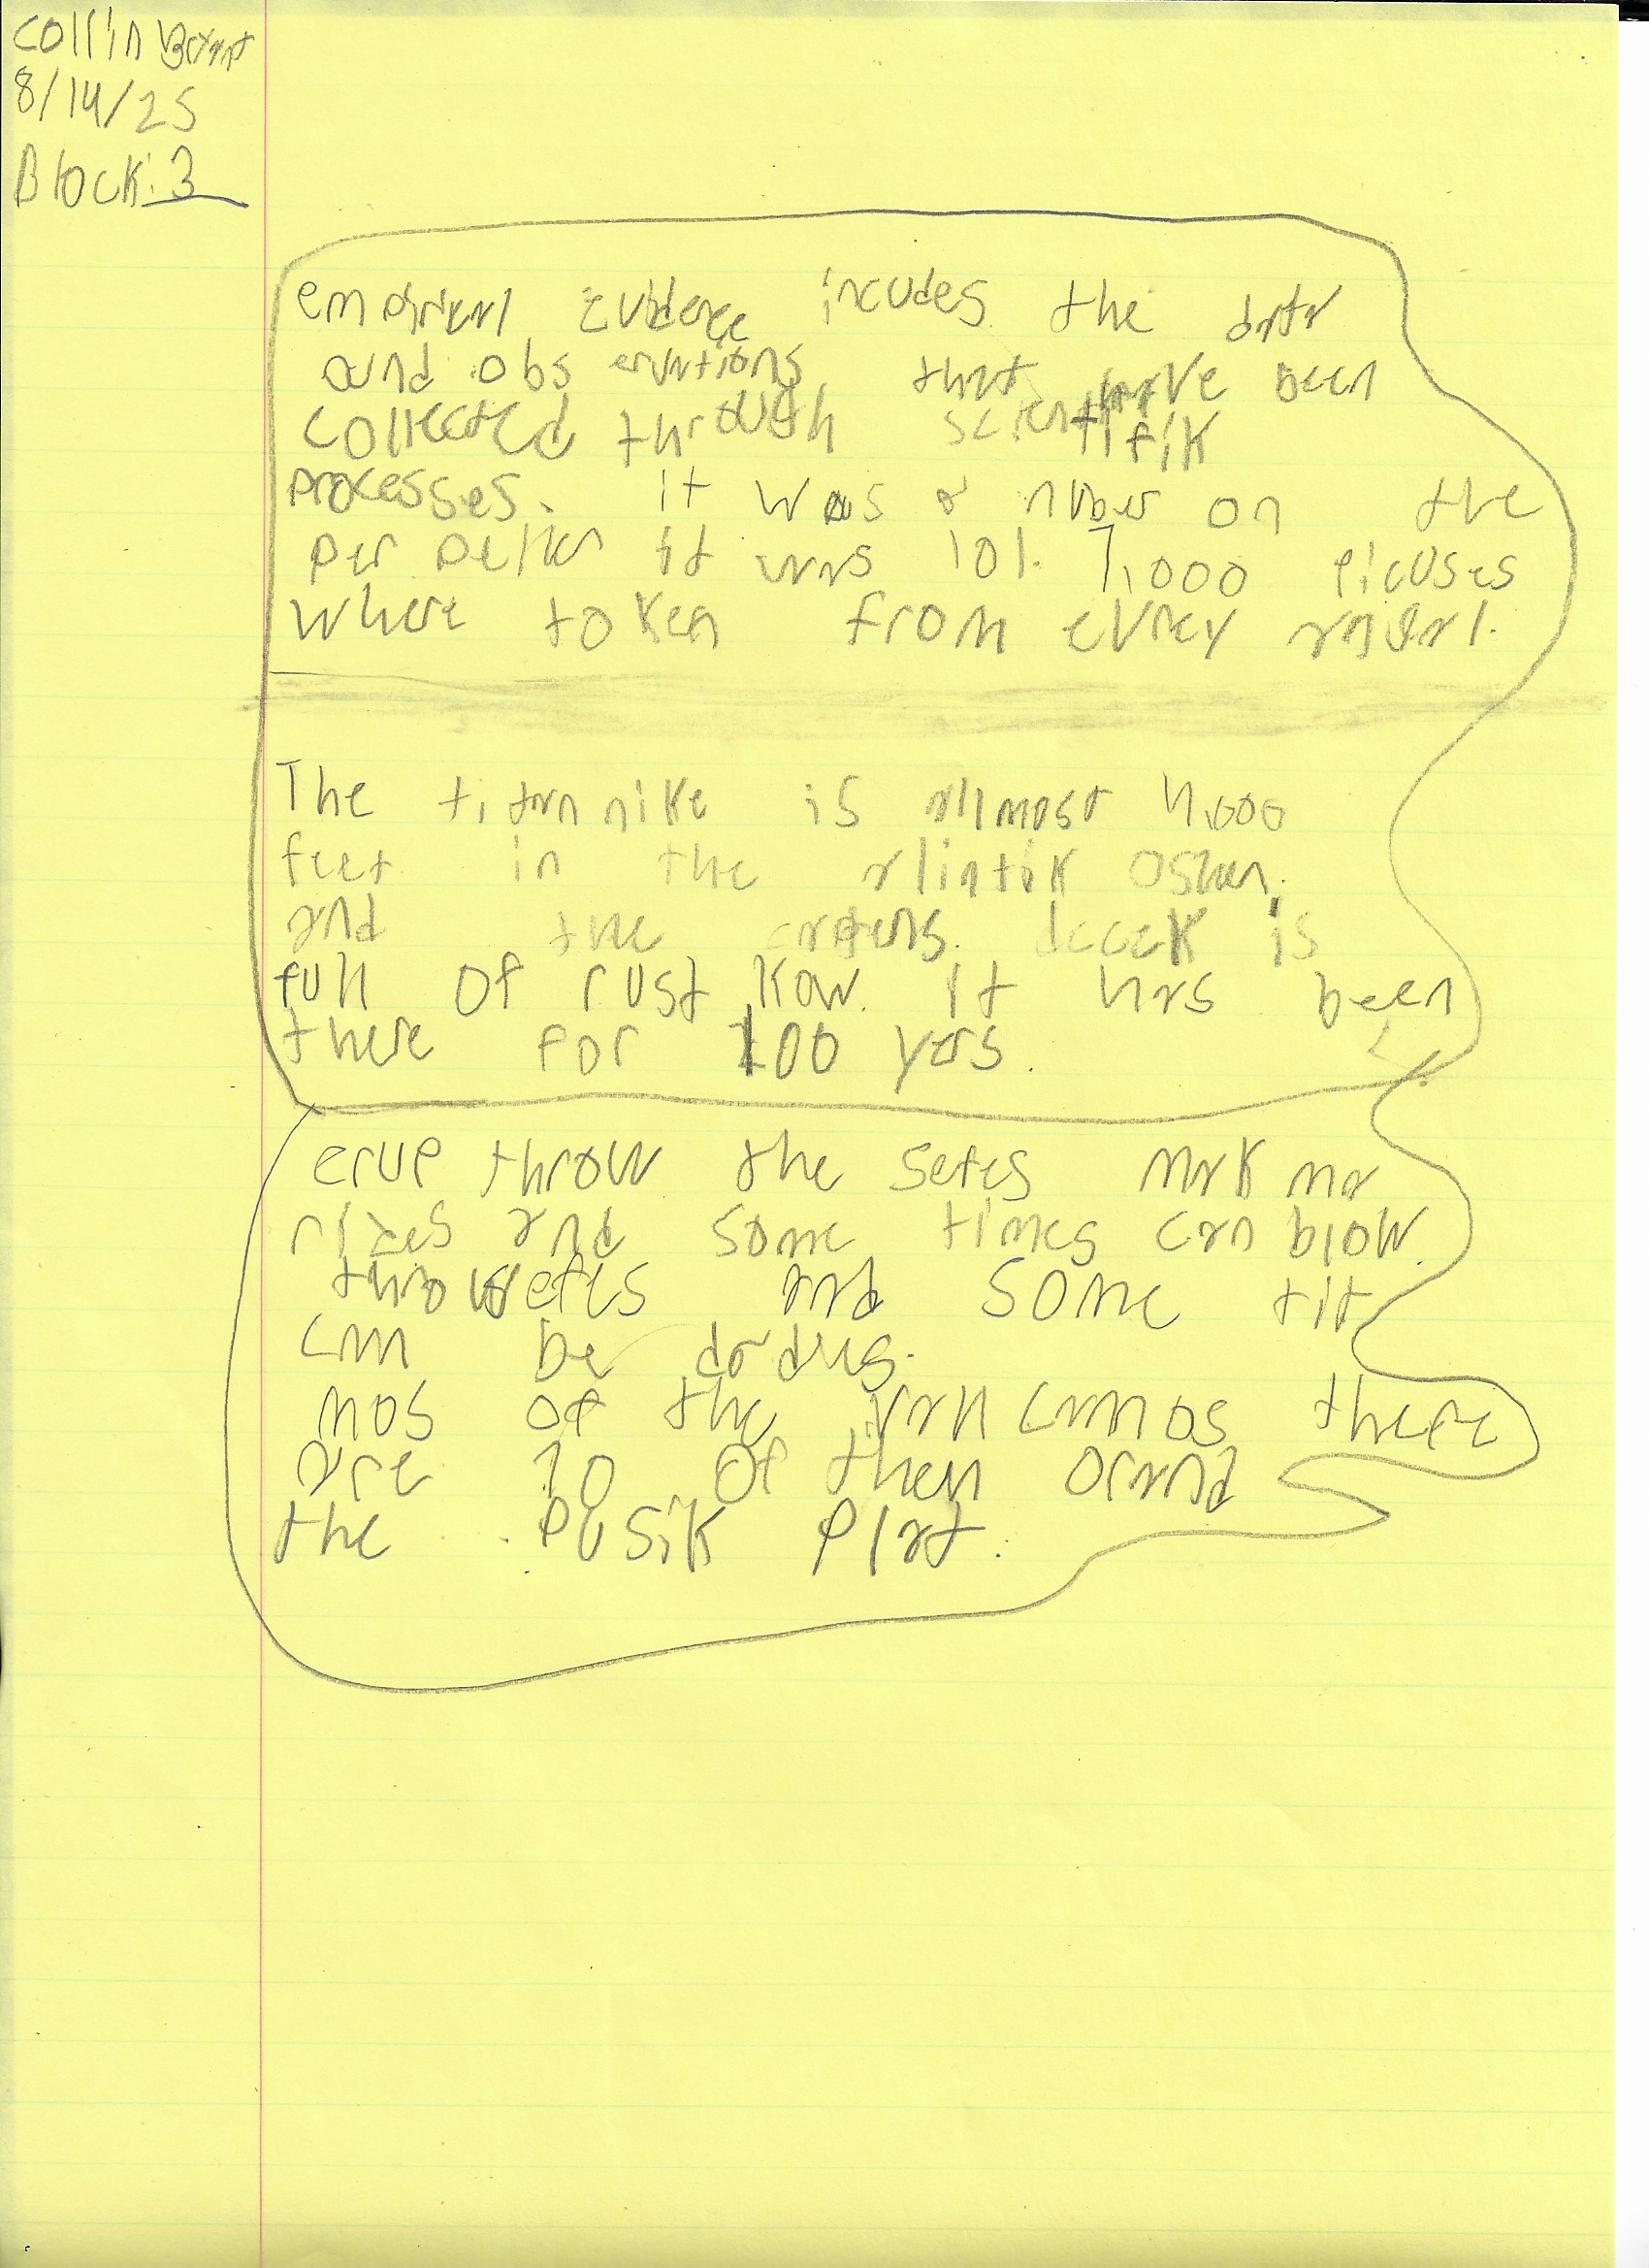 Collin
8/14/25
Block: 3
empirical Evidence incudes the data
and observations that have been
collected through scientifik
processes. it was a nuber on the
per it was 10%. 7,000 picuses
where token from evrey
The titannike is allmost 4,000
feet in the alintik Oshen.
and the captens. deceK is
full of rust Kow. It has been
there for 100 yers.
erup throw the setes mak ma
and some times can blow.
and some tit
can be
mos of the there
are 10 of then orand
the Pusik Plat.